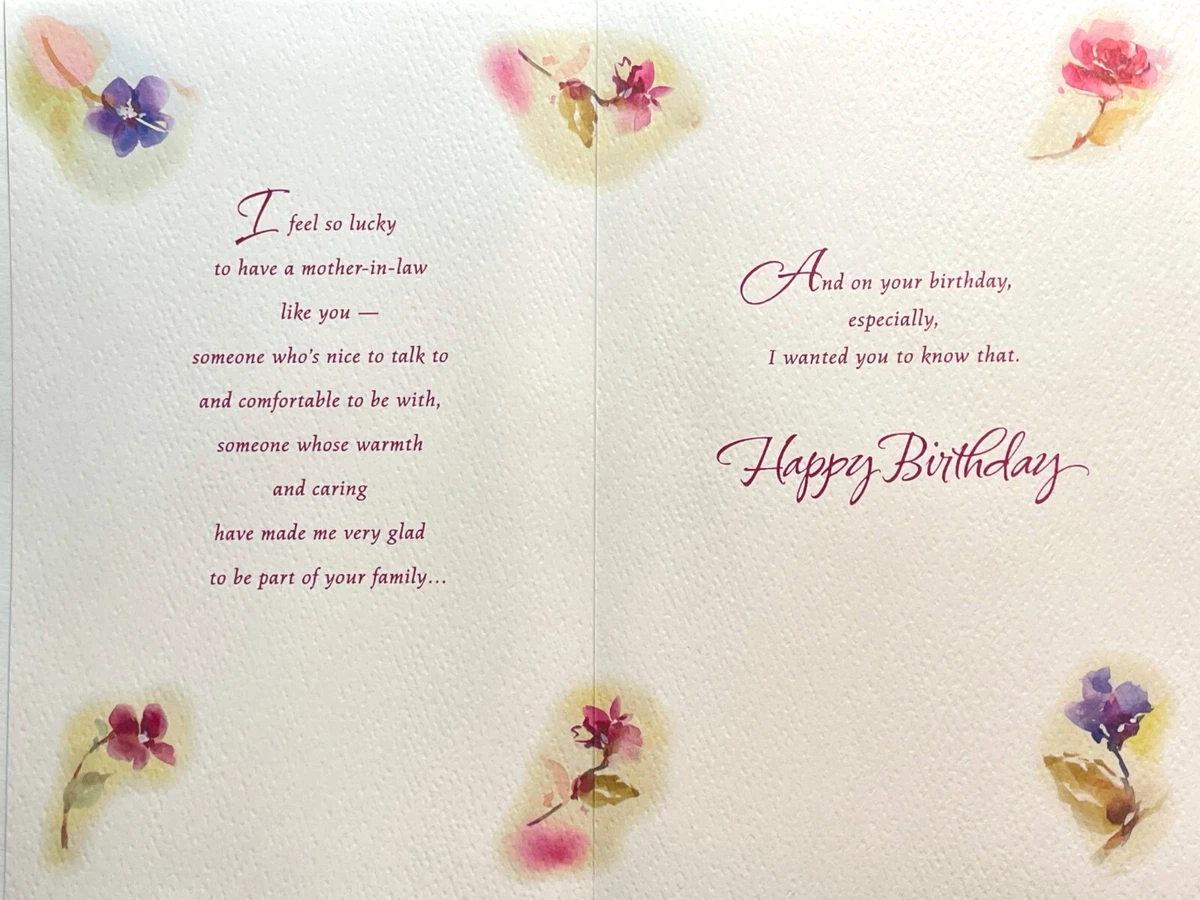 I feel so lucky
to have a mother-in-law
like you —
someone who's nice to talk to
and comfortable to be with,
someone whose warmth
and caring
have made me very glad
to be part of your family...
And on your birthday,
especially,
I wanted you to know that.
Happy Birthday